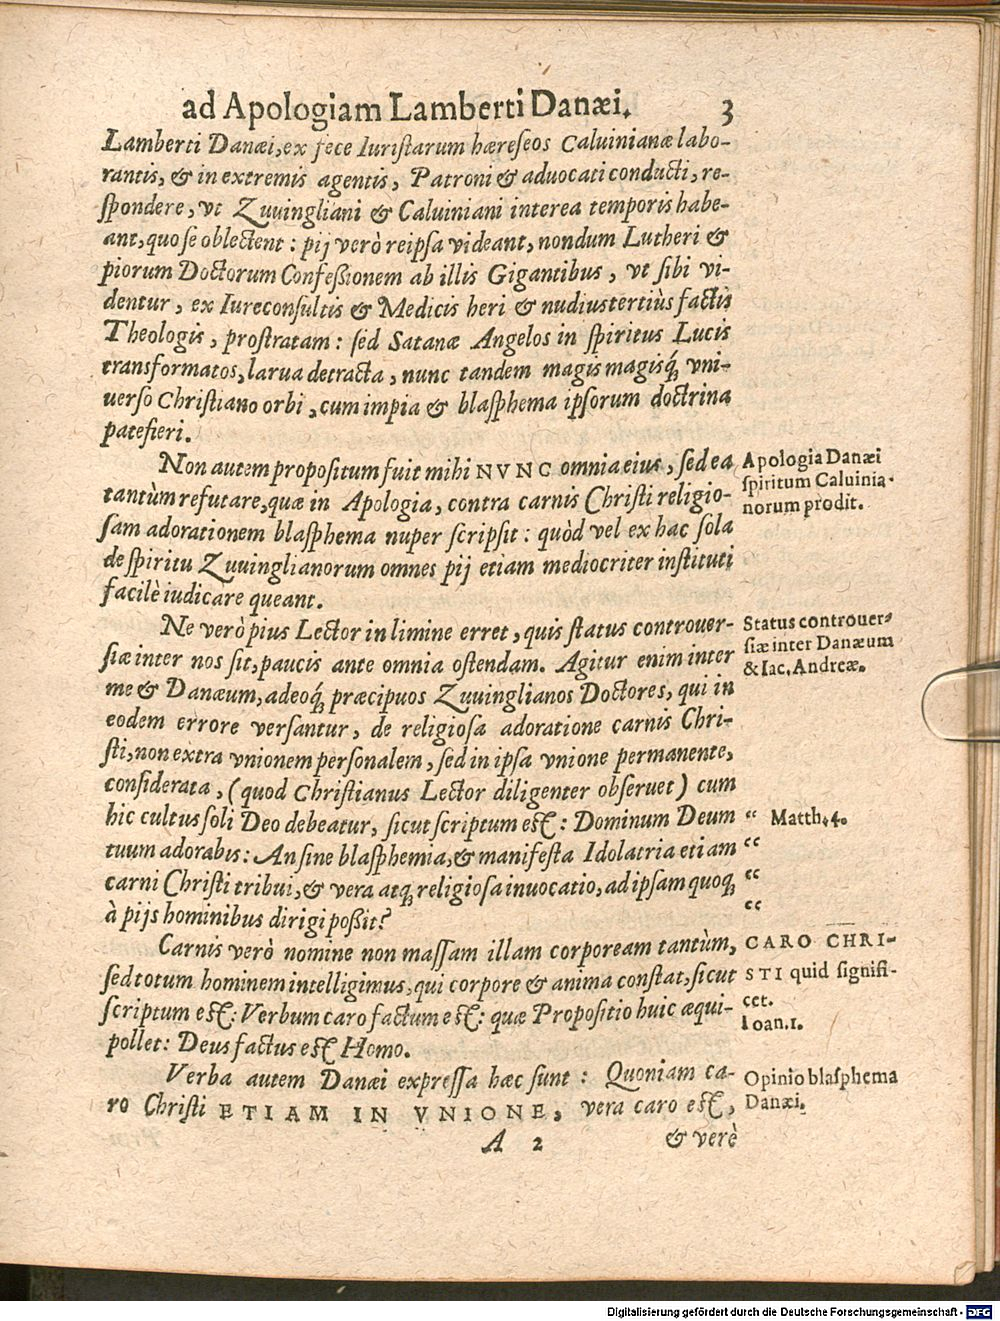 ad Apologiam Lamberti Danæi. 3
Lamberti Danæi, ex fece Iuristarum hæreseos Caluinianæ labo-
rantis, & in extremis agentis, Patroni & aduocati conducti, re-
spondere, vt Zuuingliani & Caluiniani interea temporis habe-
ant, quo se oblectent: pij verò reipsa videant, nondum Lutheri &
piorum Doctorum Confeßionem ab illis Gigantibus, vt sibi vi-
dentur, ex Iureconsultis & Medicis heri & nudiustertiùs factis
Theologis, prostratam: sed Satanæ Angelos in spiritus Lucis
transformatos, larua detracta, nunc tandem magis magisq́; vni-
uerso Christiano orbi, cum impia & blasphema ipsorum doctrina
patefieri.
Non autem propositum fuit mihi NVNC omnia eius, sed ea
tantùm refutare, quæ in Apologia, contra carnis Christi religio-
sam adorationem blasphema nuper scripsit: quòd vel ex hac sola
de spiritu Zuuinglianorum omnes pij etiam mediocriter instituti
facilè iudicare queant.
Apologia Danæi
spiritum Caluinia-
norum prodit.
Ne verò pius Lector in limine erret, quis status controuer-
siæ inter nos sit, paucis ante omnia ostendam. Agitur enim inter
me & Danæum, adeoq́; præcipuos Zuuinglianos Doctores, qui in
eodem errore versantur, de religiosa adoratione carnis Chri-
sti, non extra vnionem personalem, sed in ipsa vnione permanente,
considerata, (quod Christianus Lector diligenter obseruet) cum
hic cultus soli Deo debeatur, sicut scriptum est: Dominum Deum
tuum adorabis: An sine blasphemia, & manifesta Idolatria etiam
carni Christi tribui, & vera atq; religiosa inuocatio, ad ipsam quoq;
à pijs hominibus dirigi poßit?
Status controuer-
siæ inter Danæum
& Iac. Andreæ.
“ Matth. 4.
“
“
“
Carnis verò nomine non massam illam corpoream tantùm,
sed totum hominem intelligimus, qui corpore & anima constat, sicut
scriptum est: Verbum caro factum est: quæ Propositio huic æqui-
pollet: Deus factus est Homo.
CARO CHRI-
STI quid signifi-
cet.
Ioan. 1.
Verba autem Danæi expressa hæc sunt: Quoniam ca-
ro Christi ETIAM IN VNIONE, vera caro est,
Opinio blasphema
Danæi.
A 2 & verè
Digitalisierung gefördert durch die Deutsche Forschungsgemeinschaft - DFG